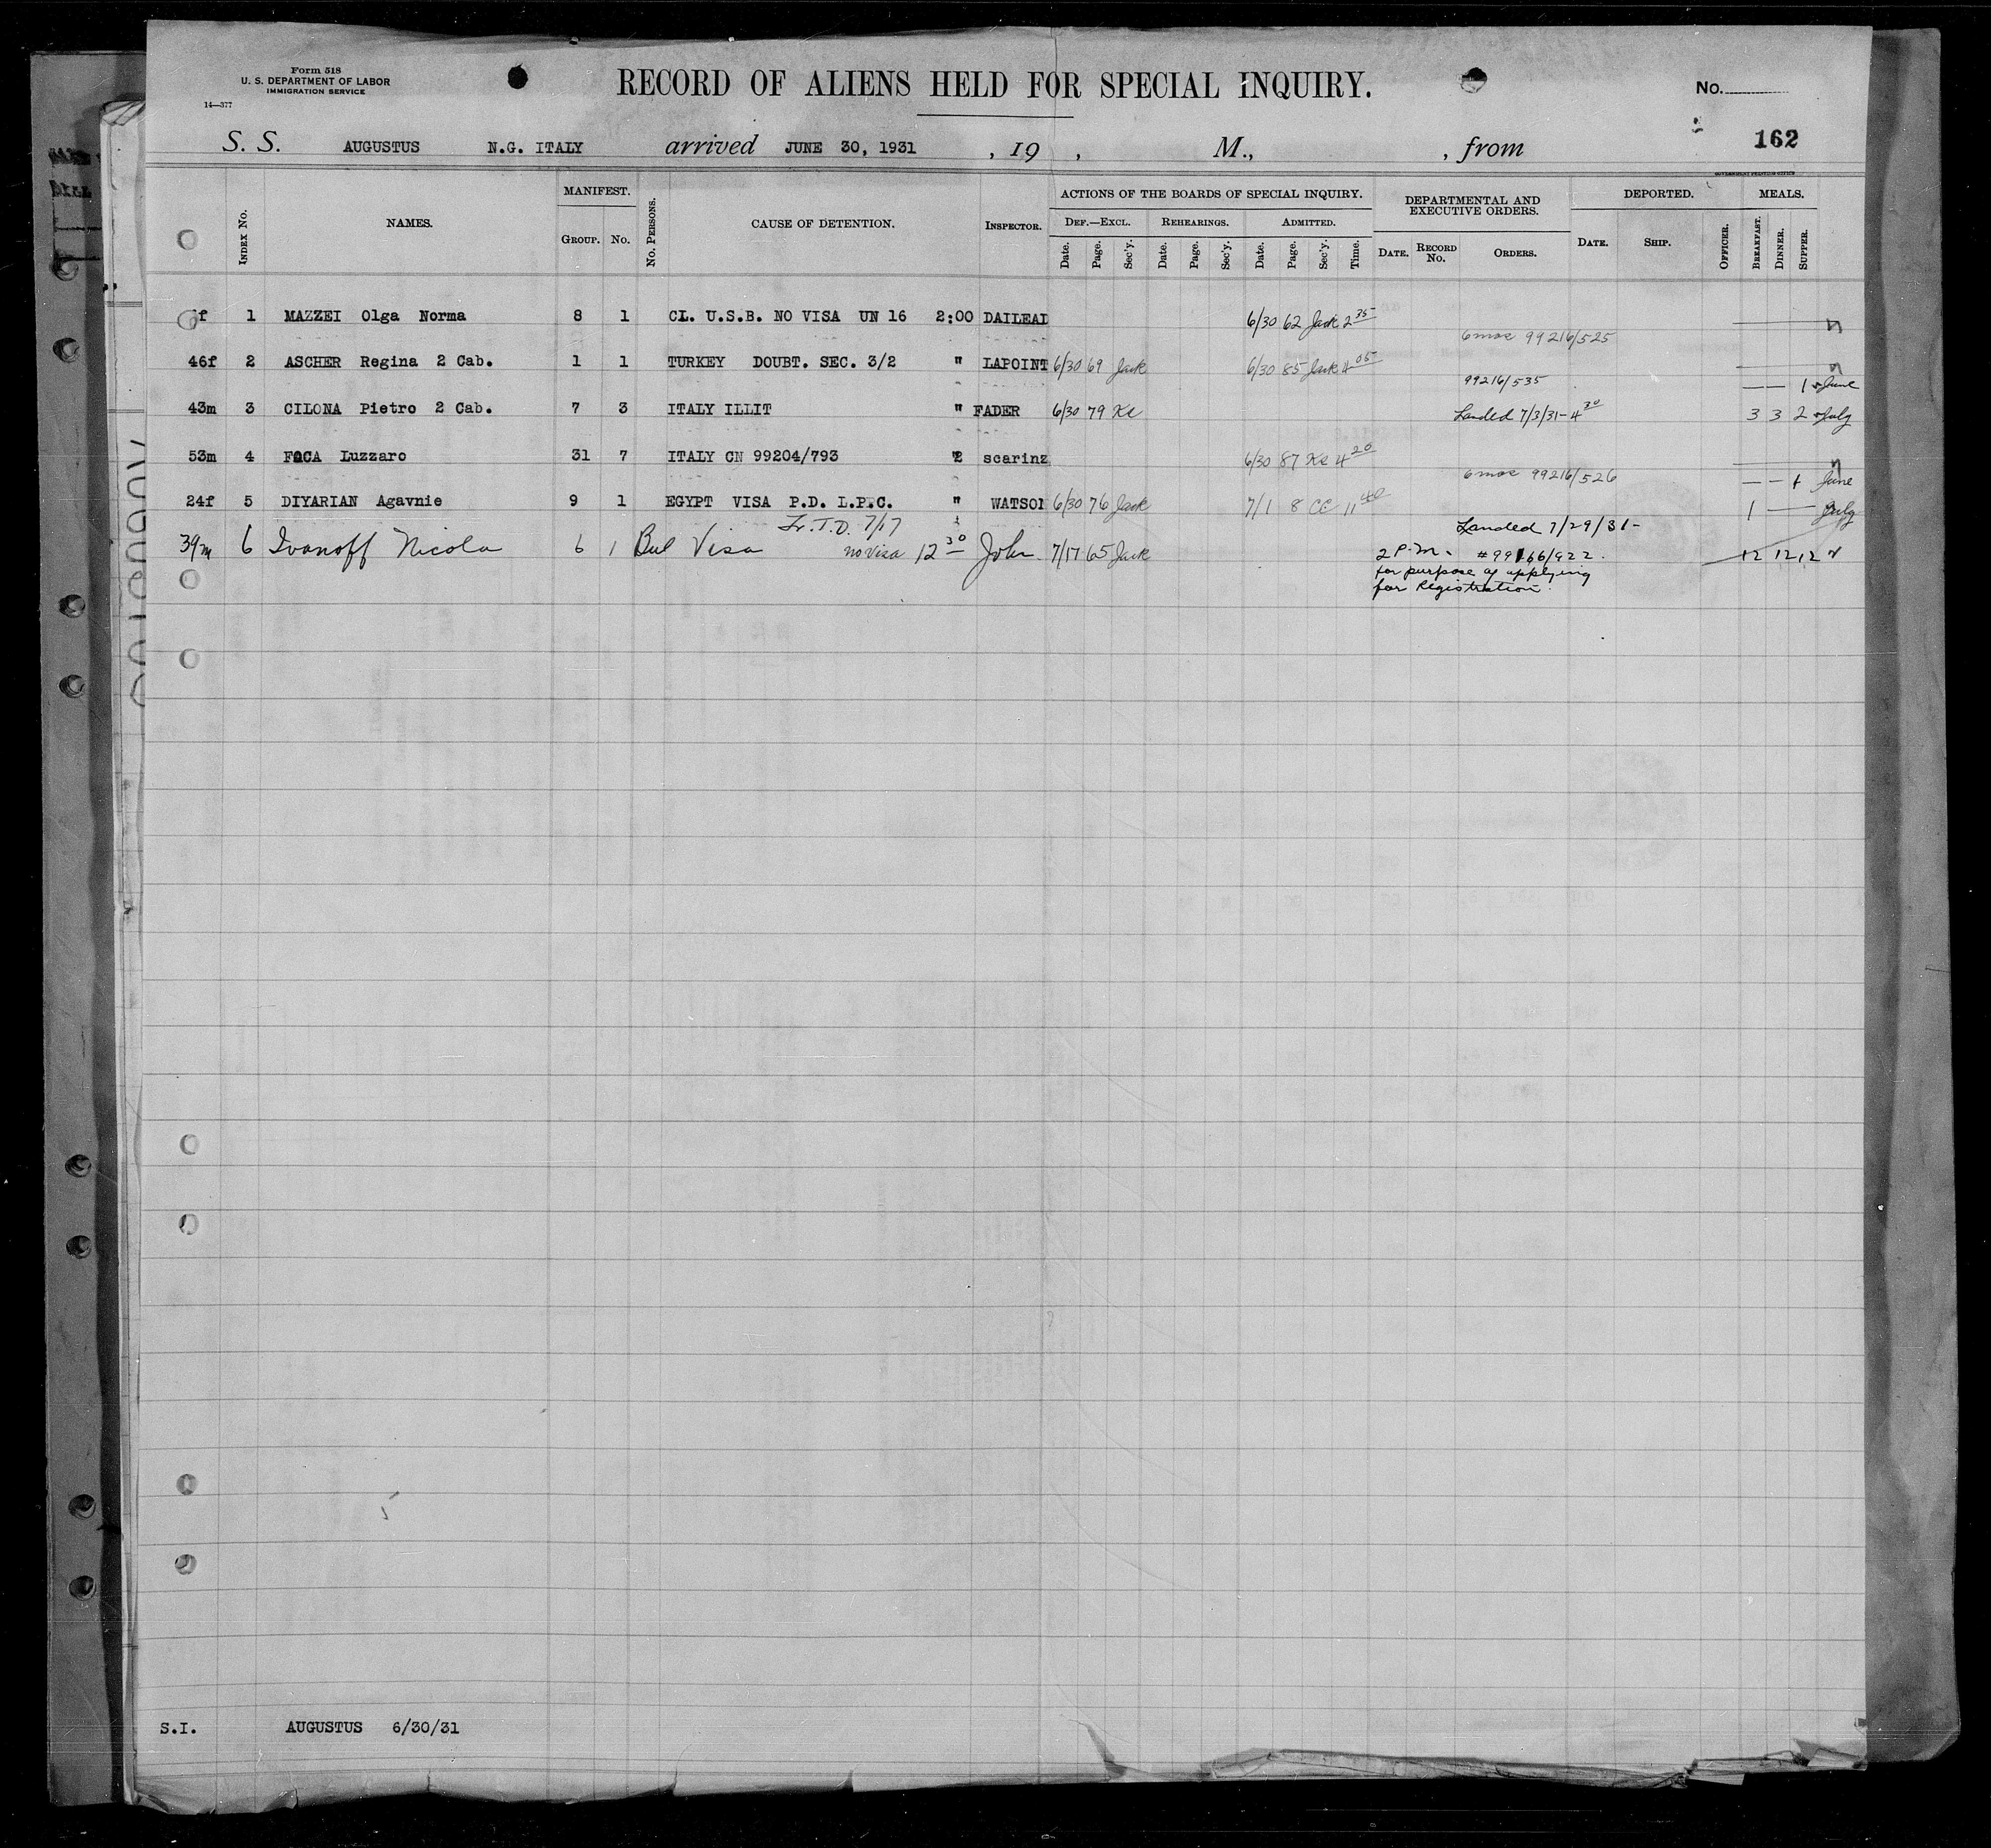 Form 518
U. S. DEPARTMENT OF LABOR
IMMIGRATION SERVICE
14—377
RECORD OF ALIENS HELD FOR SPECIAL INQUIRY.
No.
162
S. S. AUGUSTUS N.G. ITALY arrived JUNE 30, 1931 , 19 , M., , from
GOVERNMENT PRINTING OFFICE
INDEX No. NAMES. MANIFEST. GROUP. No. No. PERSONS. CAUSE OF DETENTION. INSPECTOR.
ACTIONS OF THE BOARDS OF SPECIAL INQUIRY.
DEF.—EXCL. Date. Page. Sec'y. REHEARINGS. Date. Page. Sec'y. ADMITTED. Date. Page. Sec'y. Time.
DEPARTMENTAL AND EXECUTIVE ORDERS. DATE. RECORD No. ORDERS.
DEPORTED. DATE. SHIP. OFFICER. MEALS. BREAKFAST. DINNER. SUPPER.
f 1 MAZZEI Olga Norma 8 1 CL. U.S.B. NO VISA UN 16 2:00 DAILEAD 6/30 62 Jack 2 35
6 mos 99216/525
46f 2 ASCHER Regina 2 Cab. 1 1 TURKEY DOUBT. SEC. 3/2 " LAPOINT 6/30 69 Jack 6/30 85 Jack 4 05
99216/535 — — 1 June
43m 3 CILONA Pietro 2 Cab. 7 3 ITALY ILLIT " FADER 6/30 79 Ke Landed 7/3/31- 4 30 3 3 2 July
53m 4 FOCA Luzzaro 31 7 ITALY CN 99204/793 2 scarinz 6/30 87 Ke 4 20
6 mos 99216/526 — — 1 June
24f 5 DIYARIAN Agavnie 9 1 EGYPT VISA P.D. L.P.C. " WATSON 6/30 76 Jack 7/1 8 CC 11 40 1 — July
Fr. T.D. 7/17 Landed 7/29/31-
39m 6 Ivanoff Nicola 6 1 Bul Visa no visa 12 30 John 7/17 65 Jack 2 P.M. #99166/922. 12 12 12
for purpose of applying
for Registration.
S.I. AUGUSTUS 6/30/31